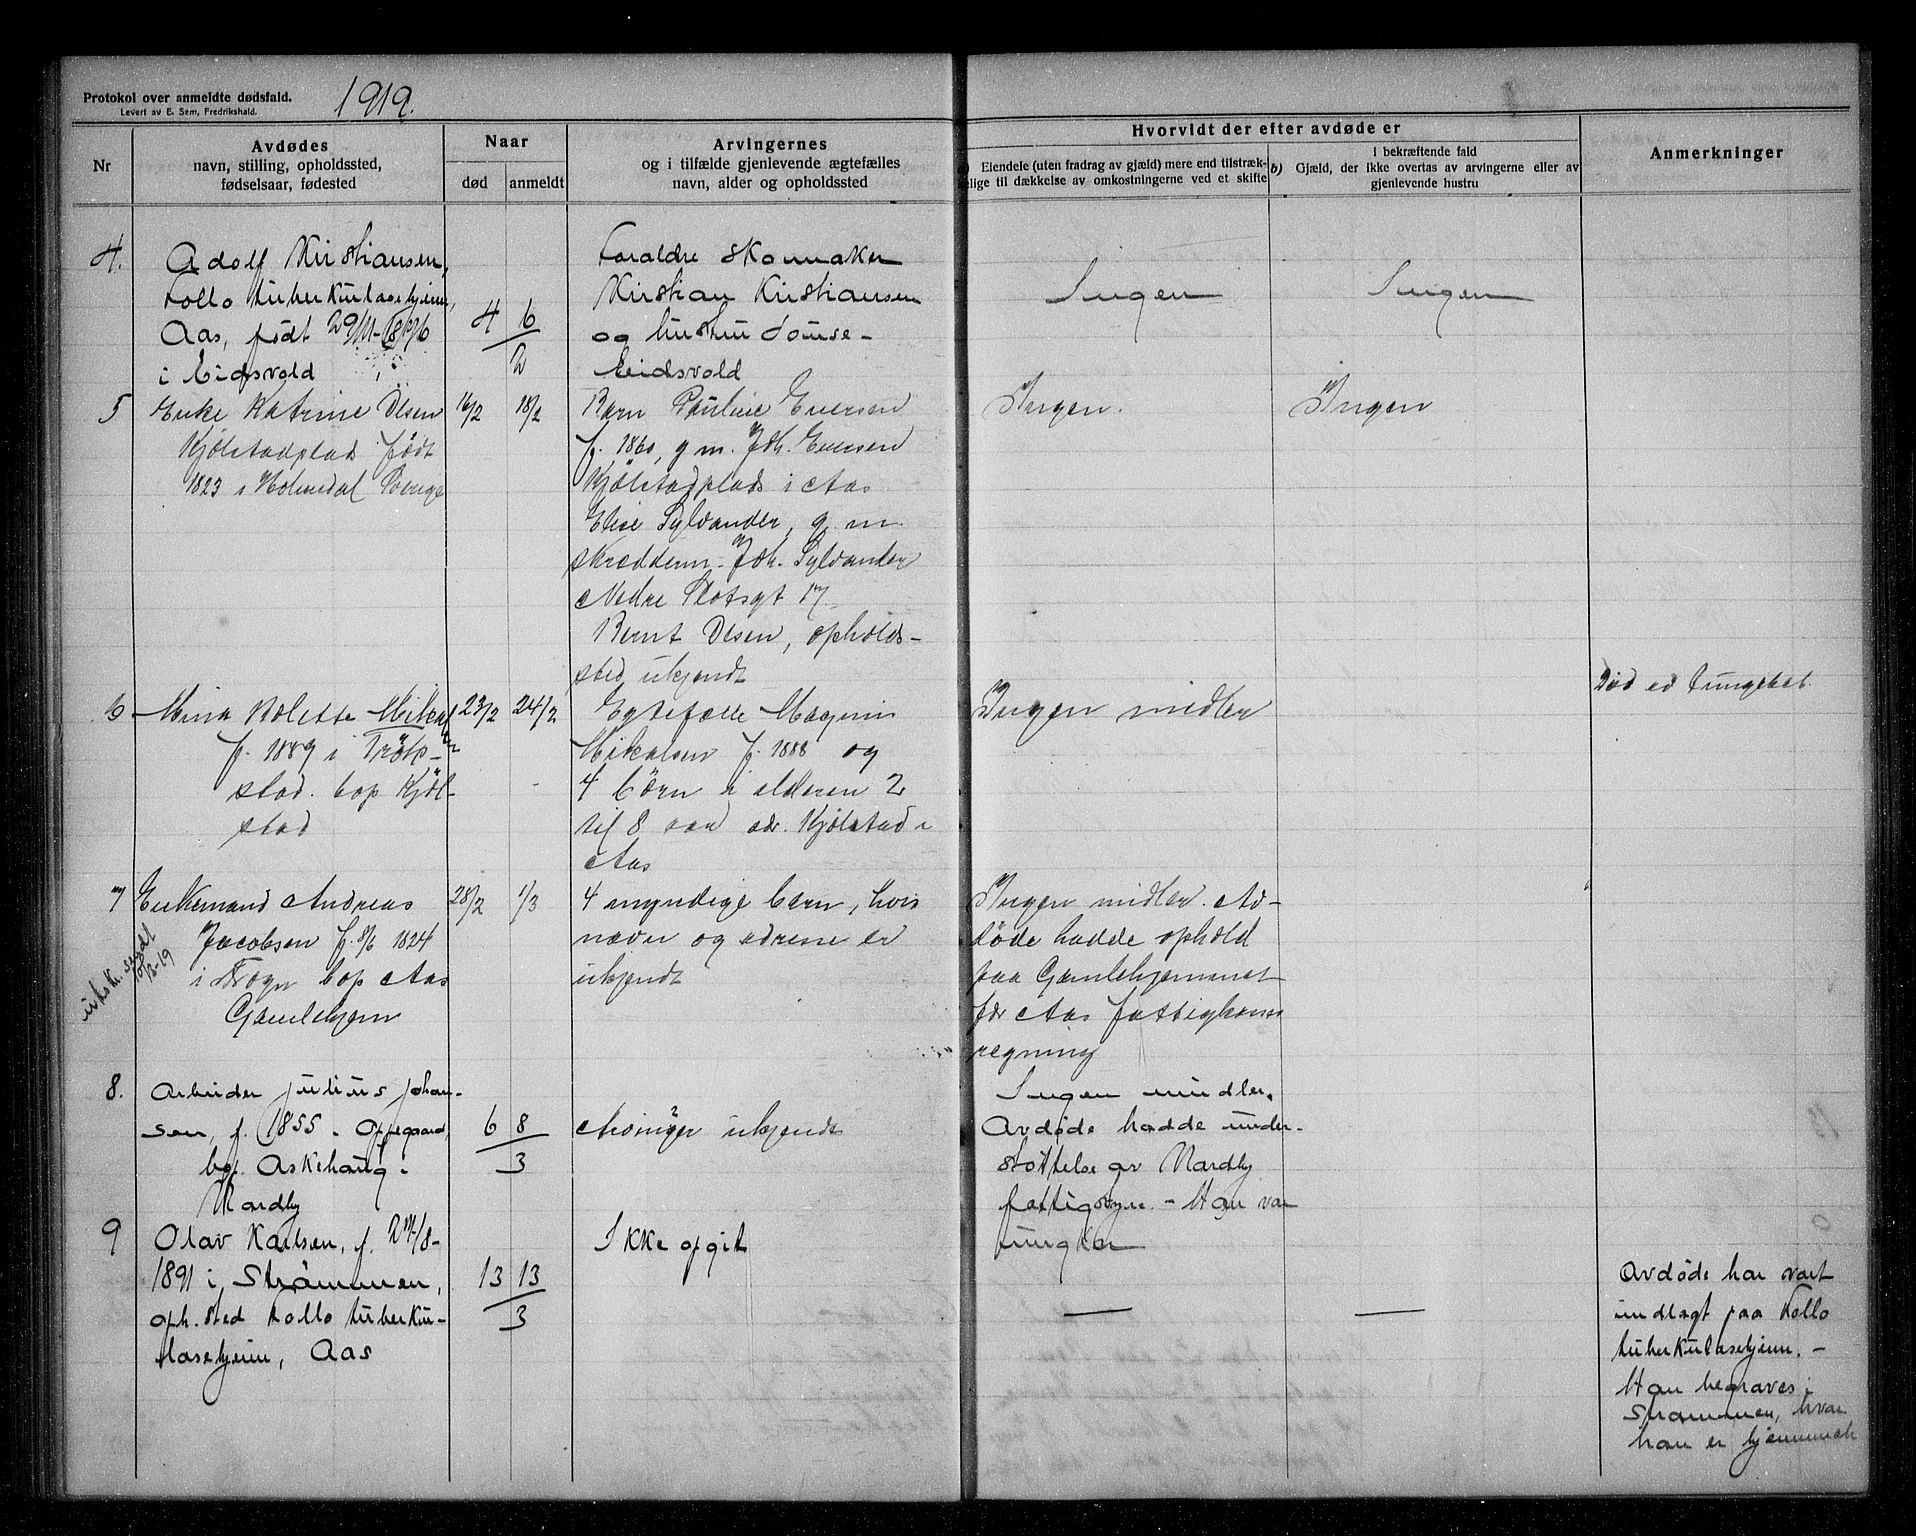 Protokol over anmeldte dødsfald.
Levert av E. Sem, Fredrikshald.
1919.
Nr
Avdødes
navn, stilling, opholdssted,
fødselsaar, fødested
Naar
død
anmeldt
Arvingernes
og i tilfælde gjenlevende ægtefælles
navn, alder og opholdssted
Hvorvidt der efter avdøde er
Eiendele (uten fradrag av gjæld) mere end tilstræk-
kelige til dækkelse av omkostningerne ved et skifte
b)
I bekræftende fald
Gjæld, der ikke overtas av arvingerne eller av
gjenlevende hustru
Anmerkninger
4.
Adolf Kirstiansen,
Follo tuberkulosehjem,
Aas, født 29/11-1896
i Eidsvold
4 6
2
Foraldre skomaker
Kirstian Kirstiansen
og hustru Louise -
Eidsvold
Ingen
Ingen
5
Enke Katrine Olsen
Kjølstadplads født
1823 i Holmedal Sverige
16/2
18/2
Barn Pauline Evensen
f. 1860, g m. Joh. Evensen
Kjølstadplads i Aas
Elise Sylvander, g. m.
skrædderm. Joh. Sylvander
Nedre Slotsgt 17
Bernt Olsen, opholds-
sted ukjendt
Ingen.
Ingen
6
Mina Bolette Mikal
f. 1889 i Trøk-
stad. bop Kjøl-
stad
23/2
24/2
Egtefælle Magnus
Mikalsen f. 1888 og
4 børn i alderen 2
til 8 aar adr. Kjølstad i
Aas
Ingen midler
Død ad tungebet.
7
Enkemand Andreas
Jacobsen f. 8/6 1824
i Frogn bop Aas
Gamlehjem
28/2
1/3
4 myndige barn, hvis
navn og adresse er
ukjendt
Ingen midler. Av-
døde hadde ophold
paa Gamlehjemmet
for Aas fattigkomm
regning
8.
Arbeider Julius Johan-
sen, f. 1855 - Oppegaard,
bop. Askehaug i
Nordby
6 8
3
Arvinger ukjendt
Ingen midler.
Avdøde hadde under-
støttelse av Nordby
fattigvæsen. - Han var
ungkar
9
Olav Karlsen, f. 24/8-
1891 i Strømmen,
oph.sted Follo tuberku-
losehjem, Aas
13 13
3
Ikke opgit
Avdøde har vært
indlagt paa Follo
tuberkulosehjem. -
Han begraves i
Strømmen, hvor
han er hjemmeh